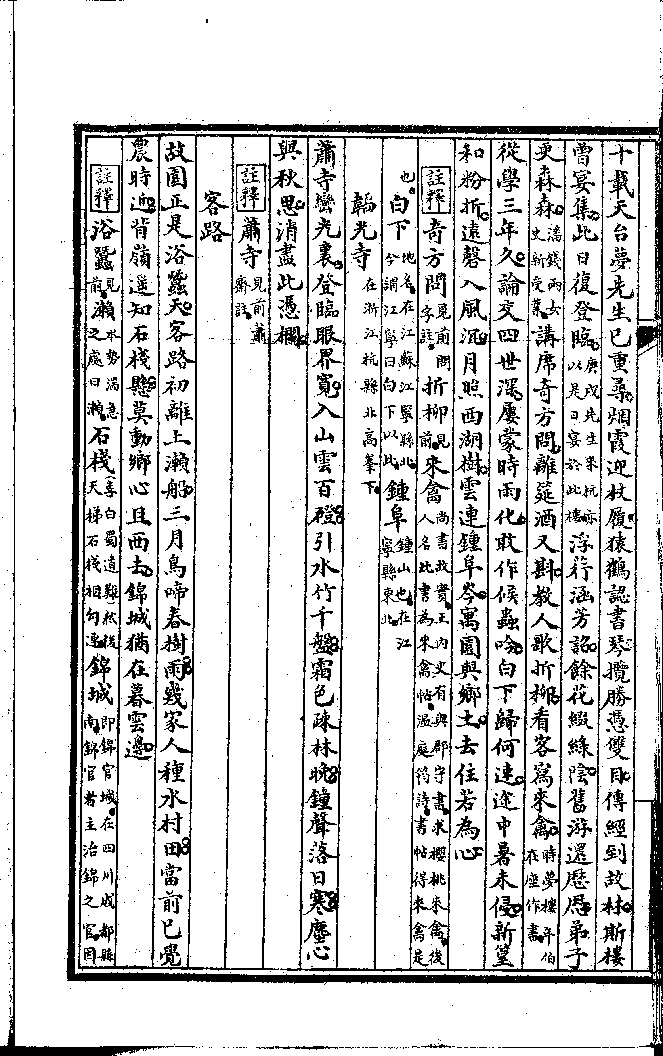 十載天台夢先生已重尋烟霞迎杖履猿鶴認書琴攬勝憑雙目傳經到故林斯樓
曾宴集此日復登臨庚戌先生來杭亦以是日宴於此樓浮荇涵芳諂餘花綴綠陰舊游還歷歷弟子
更森森滿錢兩女史新受業講席奇方問離筵酒又斟教人歌折柳看客寫來禽時夢樓年伯在座作書
從學三年久論交四世深屢蒙時雨化敢作候蟲吟白下歸何速途中暑未侵新篁
和粉折遠磬入風沉月照西湖樹雲連鍾阜岑寓園與鄉土去住若為心
註釋 奇方問見前問字註折柳見前來禽尚書故實王內史有與郡守書求櫻桃來禽後人名此書為來禽帖過庭筠詩書帖得來禽是
也白下地名在江蘇江寧縣北今謂江寧曰白下以此鍾阜鍾山也在江寧縣東北
韜光寺在浙江杭縣北高峯下
蕭寺巒光裏登臨眼界寬入山雲百磴引水竹千盤霜色疎林晚鐘聲落日寒塵心
與秋思消盡此憑欄
註釋 蕭寺見前蕭齋註
客路
故園正是浴蠶天客路初離上瀨船三月鳥啼春樹雨幾家人種水村田當前已覺
農時近背嶺遥知石棧懸莫動鄉心且西去錦城猶在暮雲邊
註釋 浴蠶見前瀨水勢湍急之處曰瀨石棧(李白蜀道難)然後天梯石棧相勾連錦城即錦官城在四川成都縣南錦官者主治錦之官因